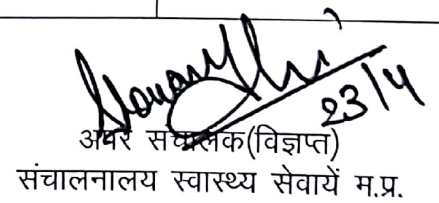 23/4
अपर संचालक(विज्ञप्त)
संचालनालय स्वास्थ्य सेवायें म.प्र.